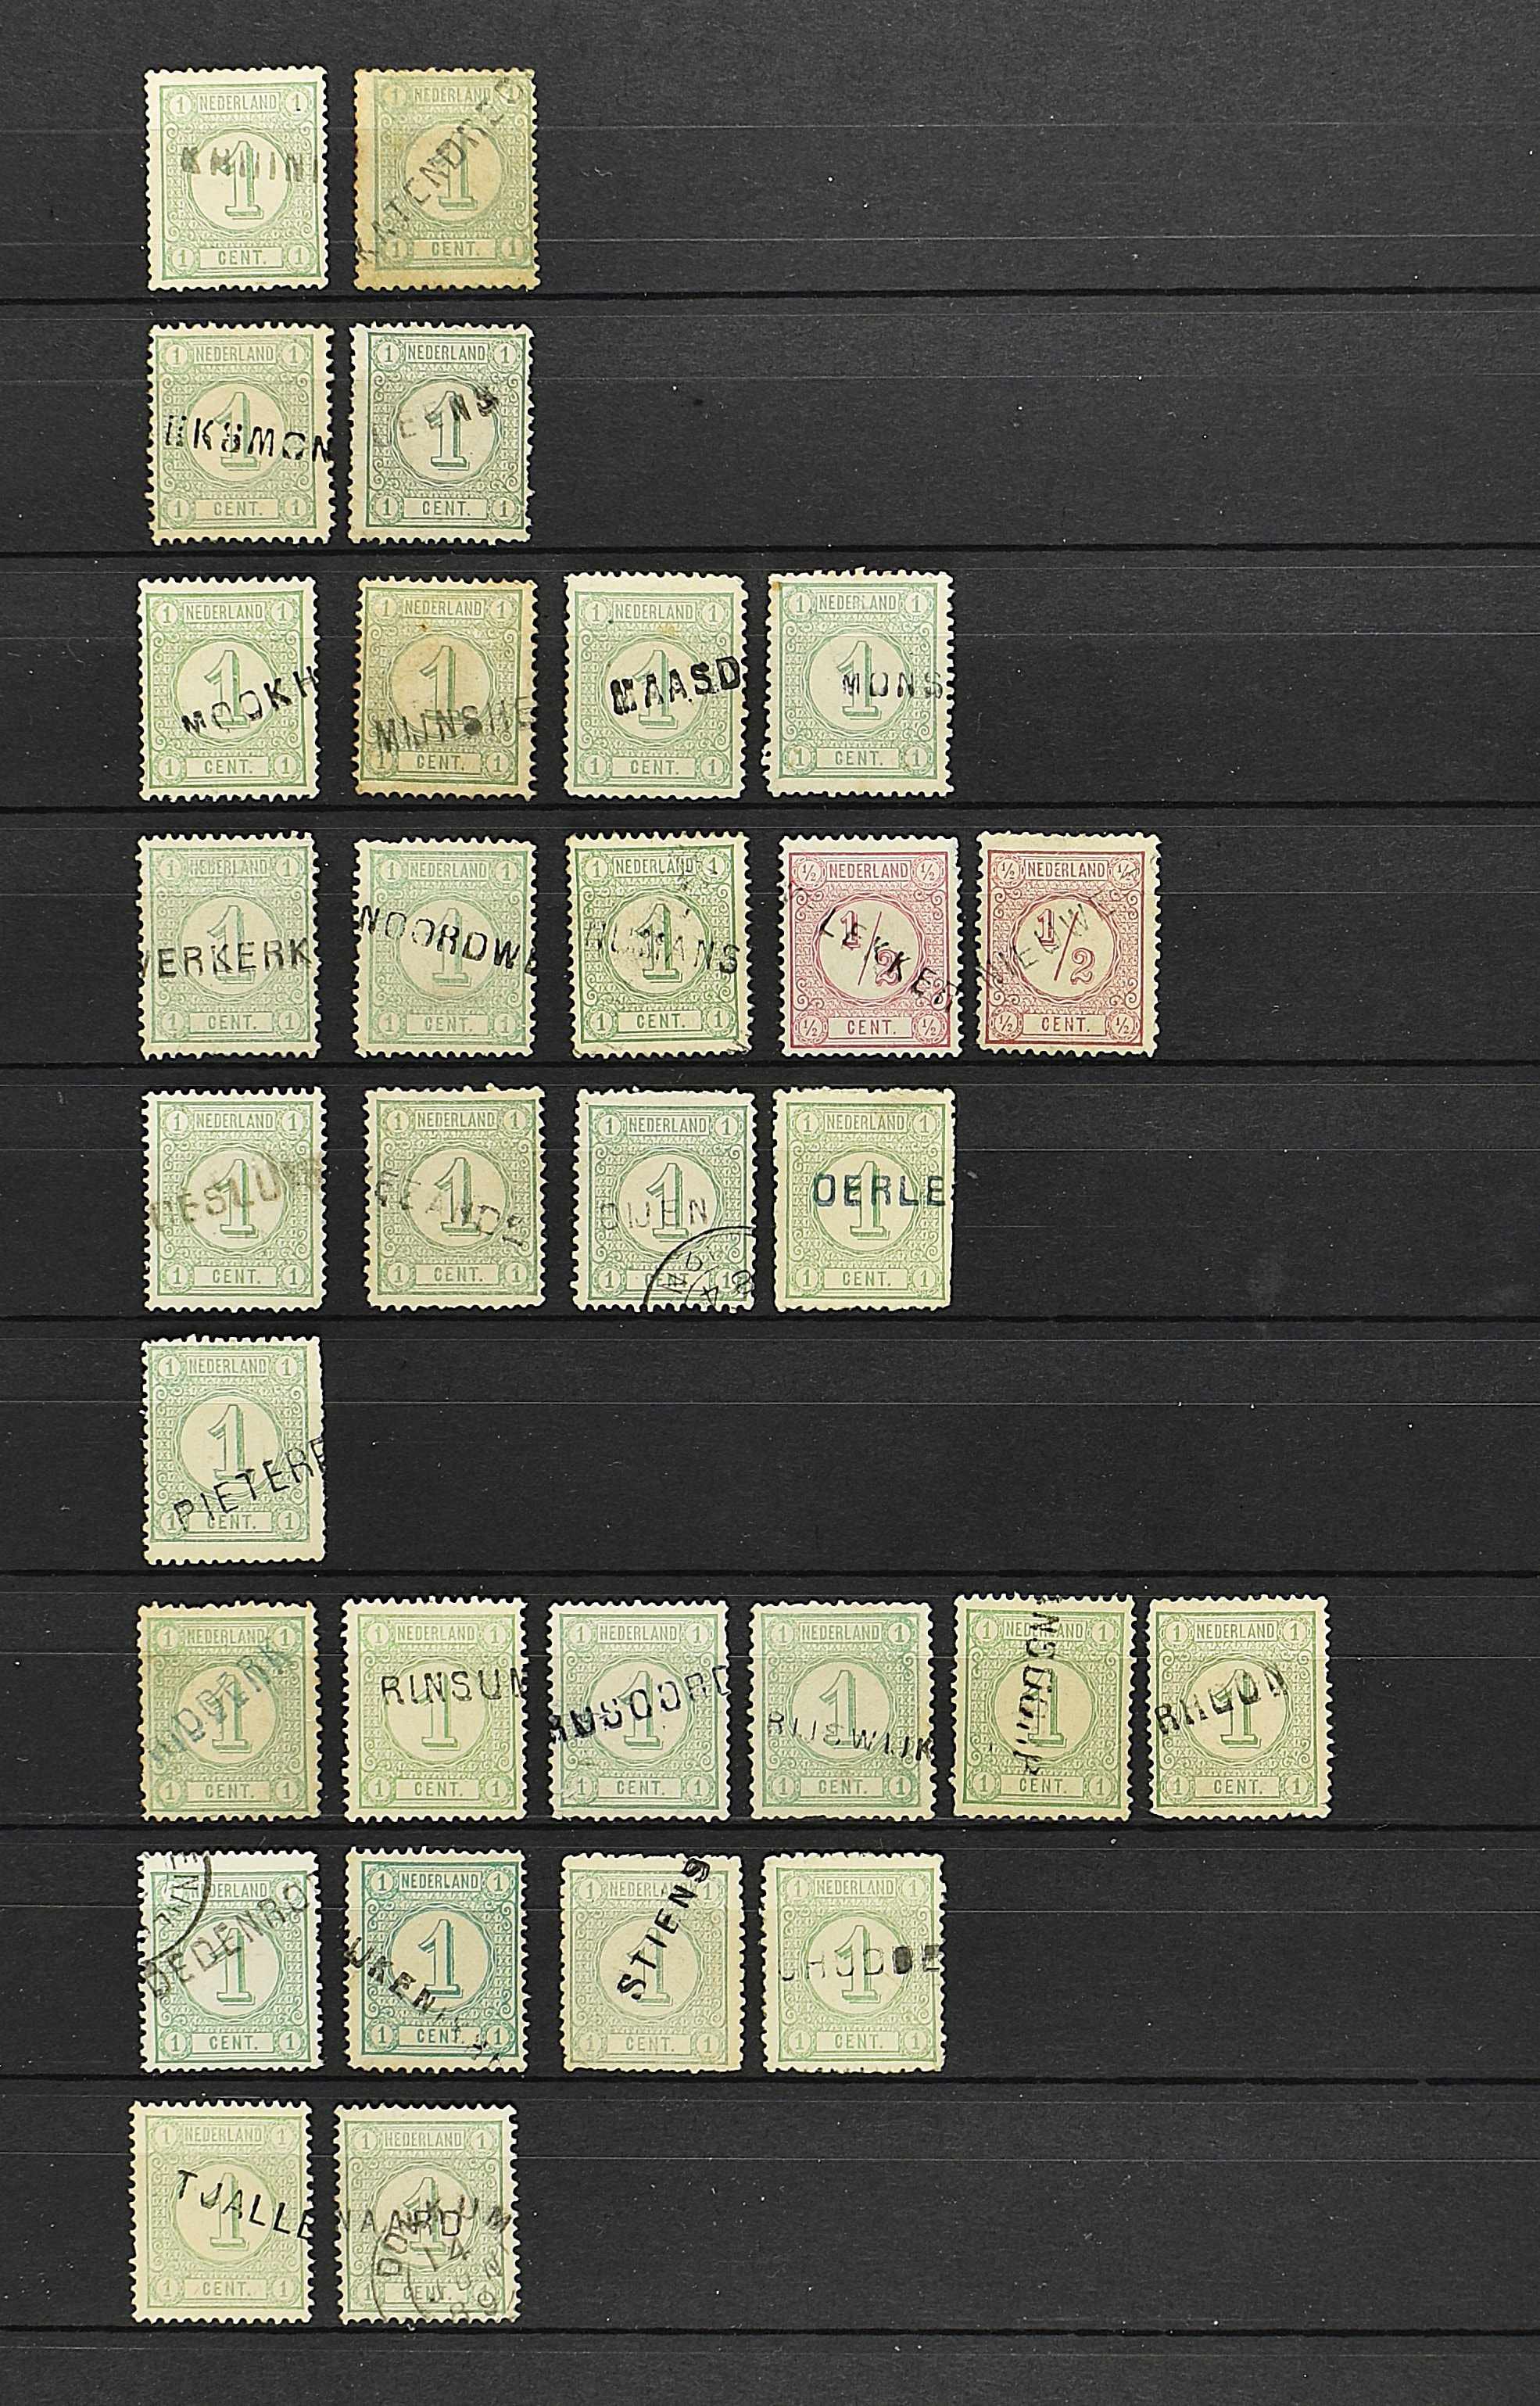 1 NEDERLAND 1
1
1 CENT. 1
1 NEDERLAND 1
KATENDRECH
1
1 CENT. 1
1 NEDERLAND 1
1
1 CENT. 1
1 NEDERLAND 1
LEENS
1
1 CENT. 1
1 NEDERLAND 1
1
MOOKH
1 CENT. 1
1 NEDERLAND 1
1
MIJNSHE
1 CENT. 1
1 NEDERLAND 1
1
MAASD
1 CENT. 1
1 NEDERLAND 1
1
MONS
1 CENT. 1
1 NEDERLAND 1
1
VERKERK
1 CENT. 1
1 NEDERLAND 1
1
NOORDWE
1 CENT. 1
1 NEDERLAND 1
1
1 CENT. 1
½ NEDERLAND ½
1/2
LEKKER
½ CENT. ½
½ NEDERLAND ½
1/2
NIEUWE
½ CENT. ½
1 NEDERLAND 1
1
1 CENT. 1
1 NEDERLAND 1
1
1 CENT. 1
1 NEDERLAND 1
1
OIJEN
1 CENT. 1
1 NEDERLAND 1
1
OERLE
1 CENT. 1
1 NEDERLAND 1
1
PIETERE
1 CENT. 1
1 NEDERLAND 1
1
1 CENT. 1
1 NEDERLAND 1
RINSUM
1
1 CENT. 1
1 NEDERLAND 1
1
1 CENT. 1
1 NEDERLAND 1
1
RIJSWIJK
1 CENT. 1
1 NEDERLAND 1
1
1 CENT. 1
1 NEDERLAND 1
RHOON
1
1 CENT. 1
NEDERLAND 1
OEDENRO
1
1 CENT. 1
1 NEDERLAND 1
1
1 CENT. 1
1 NEDERLAND 1
STIENS
1
1 CENT. 1
1 NEDERLAND 1
1
1 CENT. 1
1 NEDERLAND 1
TJALLE
1
1 CENT. 1
1 NEDERLAND 1
1
WAARD
DOKKUM
14
JUN
89
1 CENT.